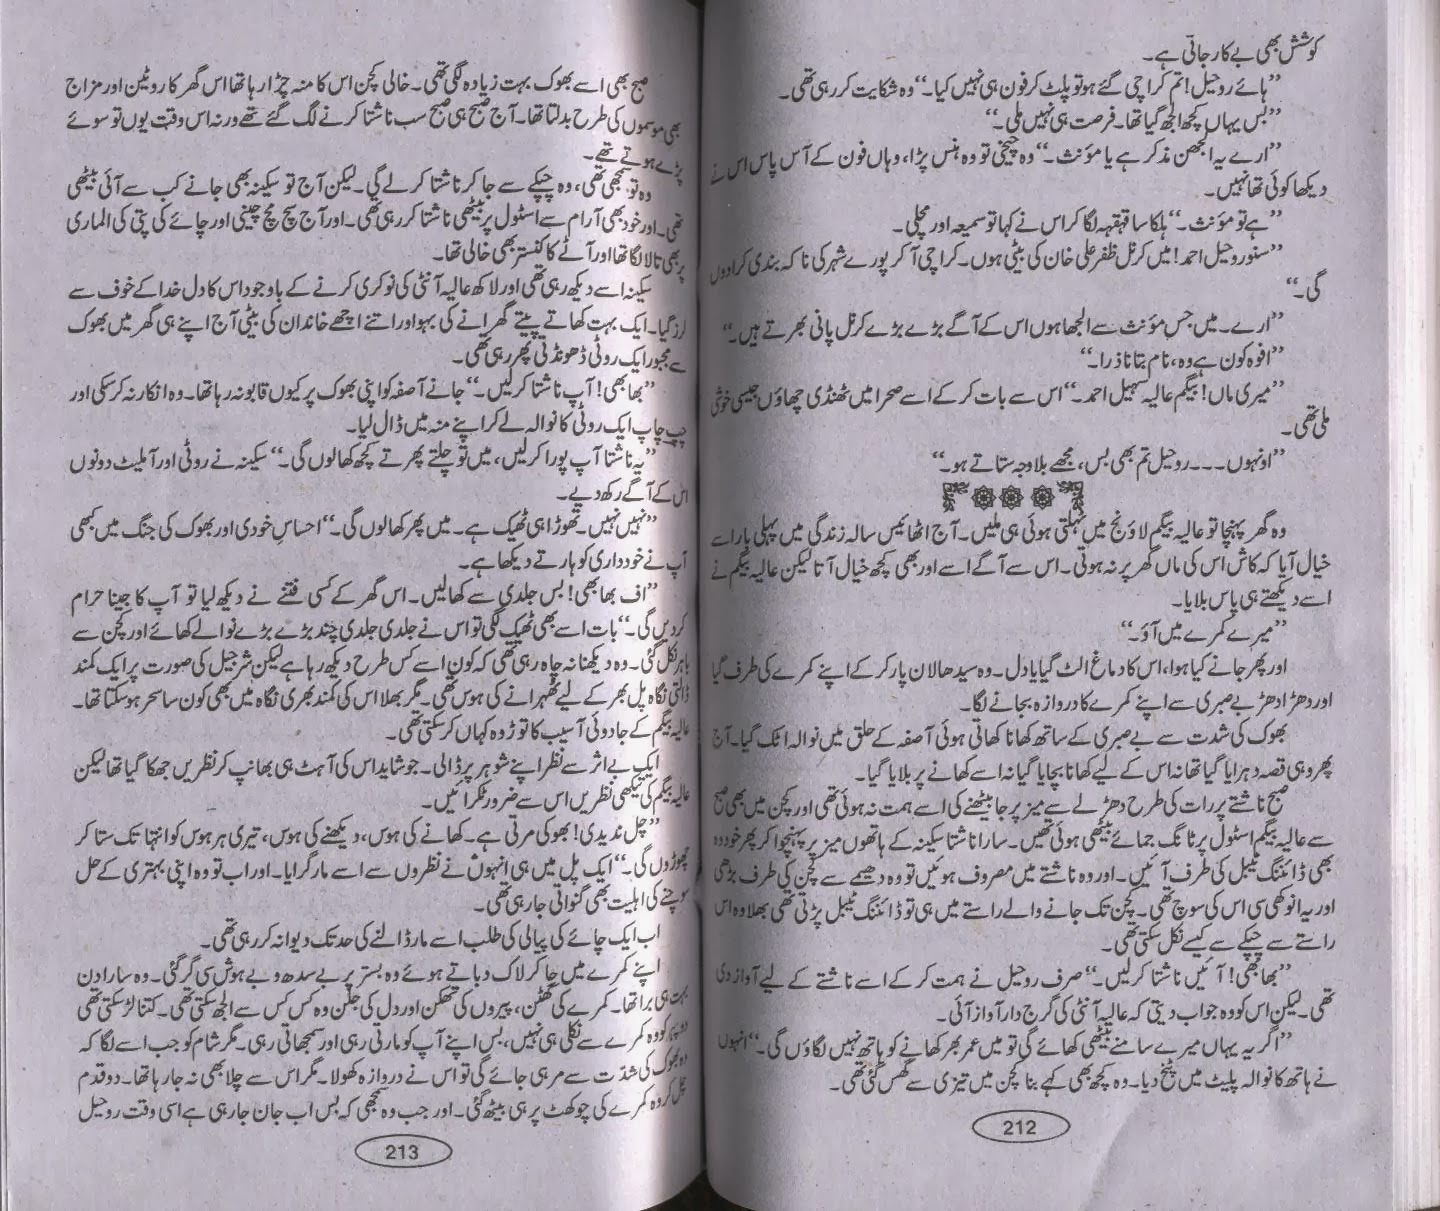 کوشش بھی بے کار جاتی ہے۔
”ہائے روحیل! تم کراچی گئے ہو تو پلٹ کر فون ہی نہیں کیا۔“ وہ شکایت کر رہی تھی۔
”بس یہاں کچھ الجھ گیا تھا۔ فرصت ہی نہیں ملی۔“
”ارے یہ الجھن مذکر ہے یا مؤنث۔“ وہ چیخی تو وہ ہنس پڑا، وہاں فون کے آس پاس اس نے
دیکھا کوئی تھا نہیں۔
”ہے تو مؤنث۔“ ہلکا سا قہقہہ لگا کر اس نے کہا تو سمیعہ اور مچلی۔
”سنو روحیل احمد! میں کرنل ظفر علی خان کی بیٹی ہوں۔ کراچی آ کر پورے شہر کی ناکہ بندی کرا دوں
گی۔“
”ارے۔ میں جس مؤنث سے الجھا ہوں اس کے آگے بڑے بڑے کرنل پانی بھرتے ہیں۔“
”افوہ کون ہے وہ، نام بتانا ذرا۔“
”میری ماں! بیگم عالیہ سہیل احمد۔“ اس سے بات کر کے اسے صحرا میں ٹھنڈی چھاؤں جیسی خوشی
ملی تھی۔
”اونہوں --- روحیل تم بھی بس، مجھے بلاوجہ ستاتے ہو۔“
وہ گھر پہنچا تو عالیہ بیگم لاؤنج میں ٹہلتی ہوئی ہی ملیں۔ آج اٹھائیس سالہ زندگی میں پہلی بار اسے
خیال آیا کہ کاش اس کی ماں گھر پر نہ ہوتی۔ اس سے آگے اسے اور بھی کچھ خیال آتا لیکن عالیہ بیگم نے
اسے دیکھتے ہی پاس بلایا۔
”میرے کمرے میں آؤ۔“
اور پھر جانے کیا ہوا، اس کا دماغ الٹ گیا یا دل۔ وہ سیدھا لان پار کر کے اپنے کمرے کی طرف گیا
اور دھڑا دھڑ بے صبری سے اپنے کمرے کا دروازہ بجانے لگا۔
بھوک کی شدت سے بے صبری کے ساتھ کھانا کھاتی ہوئی آصفہ کے حلق میں نوالہ اٹک گیا۔ آج
پھر وہی قصہ دہرایا گیا تھا نہ اس کے لیے کھانا بچایا گیا نہ اسے کھانے پر بلایا گیا۔
صبح ناشتے پر رات کی طرح دھڑلے سے میز پر جا بیٹھنے کی اسے ہمت نہ ہوئی تھی اور کچن میں بھی صبح
سے عالیہ بیگم اسٹول پر ٹانگ جمائے بیٹھی ہوئی تھیں۔ سارا ناشتا سکینہ کے ہاتھوں میز پر پہنچوا کر پھر خود وہ
بھی ڈائننگ ٹیبل کی طرف آئیں۔ اور وہ ناشتے میں مصروف ہوئیں تو وہ دھیمے سے کچن کی طرف بڑھی
اور یہ انوکھی سی اس کی سوچ تھی۔ کچن تک جانے والے راستے میں ہی تو ڈائننگ ٹیبل پڑتی تھی بھلا وہ اس
راستے سے چپکے سے کیسے نکل سکتی تھی۔
”بھابھی! آئیں ناشتا کر لیں۔“ صرف روحیل نے ہمت کر کے اسے ناشتے کے لیے آواز دی
تھی۔ لیکن اس کو وہ جواب دیتی کہ عالیہ آنٹی کی گرج دار آواز آئی۔
”اگر یہ یہاں میرے سامنے بیٹھی کھائے گی تو میں عمر بھر کھانے کو ہاتھ نہیں لگاؤں گی۔“ انہوں
نے ہاتھ کا نوالہ پلیٹ میں پٹخ دیا۔ وہ کچھ بھی کہے بنا کچن میں تیزی سے گھس گئی تھی۔
212
صبح بھی اسے بھوک بہت زیادہ لگی تھی۔ خالی کچن اس کا منہ چڑا رہا تھا اس گھر کا روٹین اور مزاج
بھی موسموں کی طرح بدلتا تھا۔ آج صبح ہی صبح سب ناشتا کرنے لگ گئے تھے ورنہ اس وقت یوں تو سوئے
پڑے ہوتے تھے۔
وہ تو سمجھی تھی، وہ چپکے سے جا کر ناشتا کر لے گی۔ لیکن آج تو سکینہ بھی جانے کب سے آئی بیٹھی
تھی۔ اور خود بھی آرام سے اسٹول پر بیٹھی ناشتا کر رہی تھی۔ اور آج سچ مچ چینی اور چائے کی پتی کی الماری
پر بھی تالا لگا تھا اور آٹے کا کنستر بھی خالی تھا۔
سکینہ اسے دیکھ رہی تھی اور لاکھ عالیہ آنٹی کی نوکری کرنے کے باوجود اس کا دل خدا کے خوف سے
لرز گیا۔ ایک بہت کھاتے پیتے گھرانے کی بہو اور اتنے اچھے خاندان کی بیٹی آج اپنے ہی گھر میں بھوک
سے مجبور ایک روٹی ڈھونڈتی پھر رہی تھی۔
”بھابھی! آپ ناشتا کر لیں۔“ جانے آصفہ کو اپنی بھوک پر کیوں قابو نہ رہا تھا۔ وہ انکار نہ کر سکی اور
چپ چاپ ایک روٹی کا نوالہ لے کر اپنے منہ میں ڈال لیا۔
”یہ ناشتا آپ پورا کر لیں، میں تو چلتے پھرتے کچھ کھا لوں گی۔“ سکینہ نے روٹی اور آملیٹ دونوں
اس کے آگے رکھ دیے۔
”نہیں نہیں۔ تھوڑا ہی ٹھیک ہے۔ میں پھر کھا لوں گی۔“ احساسِ خودی اور بھوک کی جنگ میں کبھی
آپ نے خودداری کو ہارتے دیکھا ہے۔
”اف بھابھی! بس جلدی سے کھا لیں۔ اس گھر کے کسی فتنے نے دیکھ لیا تو آپ کا جینا حرام
کر دیں گی۔“ بات اسے بھی ٹھیک لگی تو اس نے جلدی جلدی چند بڑے بڑے نوالے کھائے اور کچن سے
باہر نکل گئی۔ وہ دیکھنا نہ چاہ رہی تھی کہ کون اسے کس طرح دیکھ رہا ہے لیکن شرجیل کی صورت پر ایک کمند
ڈالتی نگاہ پل بھر کے لیے ٹھہرانے کی ہوس تھی۔ مگر بھلا اس کی کمند بھری نگاہ میں بھی کون سا سحر ہو سکتا تھا۔
عالیہ بیگم کے جادوئی آسیب کا توڑ وہ کہاں کر سکتی تھی۔
ایک بے اثر سے نظر اپنے شوہر پر ڈالی۔ جو شاید اس کی آہٹ ہی بھانپ کر نظریں جھکا گیا تھا لیکن
عالیہ بیگم کی تیکھی نظریں اس سے ضرور ٹکرائیں۔
”چل ندیدی! بھوکی مرتی ہے۔ کھانے کی ہوس، دیکھنے کی ہوس، تیری ہر ہوس کو انتہا تک ستا کر
چھوڑوں گی۔“ ایک پل میں ہی انہوں نے نظروں سے اسے مار گرایا۔ اور اب تو وہ اپنی بہتری کے حل
سوچنے کی اہلیت بھی گنواتی جا رہی تھی۔
اب ایک چائے کی پیالی کی طلب اسے مار ڈالنے کی حد تک دیوانہ کر رہی تھی۔
اپنے کمرے میں جا کر لاک دباتے ہوئے وہ بستر پر بے سدھ و بے ہوش سی گر گئی۔ وہ سارا دن
بہت ہی برا تھا۔ کمرے کی گھٹن، پیروں کی تھکن اور دل کی جلن وہ کس کس سے الجھ سکتی تھی۔ کتنا لڑ سکتی تھی
دوپہر کو وہ کمرے سے نکلی ہی نہیں، بس اپنے آپ کو مارتی رہی اور سمجھاتی رہی۔ مگر شام کو جب اسے لگا کہ
وہ بھوک کی شدت سے مر ہی جائے گی تو اس نے دروازہ کھولا۔ مگر اس سے چلا بھی نہ جا رہا تھا۔ دو قدم
چل کر وہ کمرے کی چوکھٹ پر ہی بیٹھ گئی۔ اور جب وہ سمجھی کہ بس اب جان جا رہی ہے اسی وقت روحیل
213